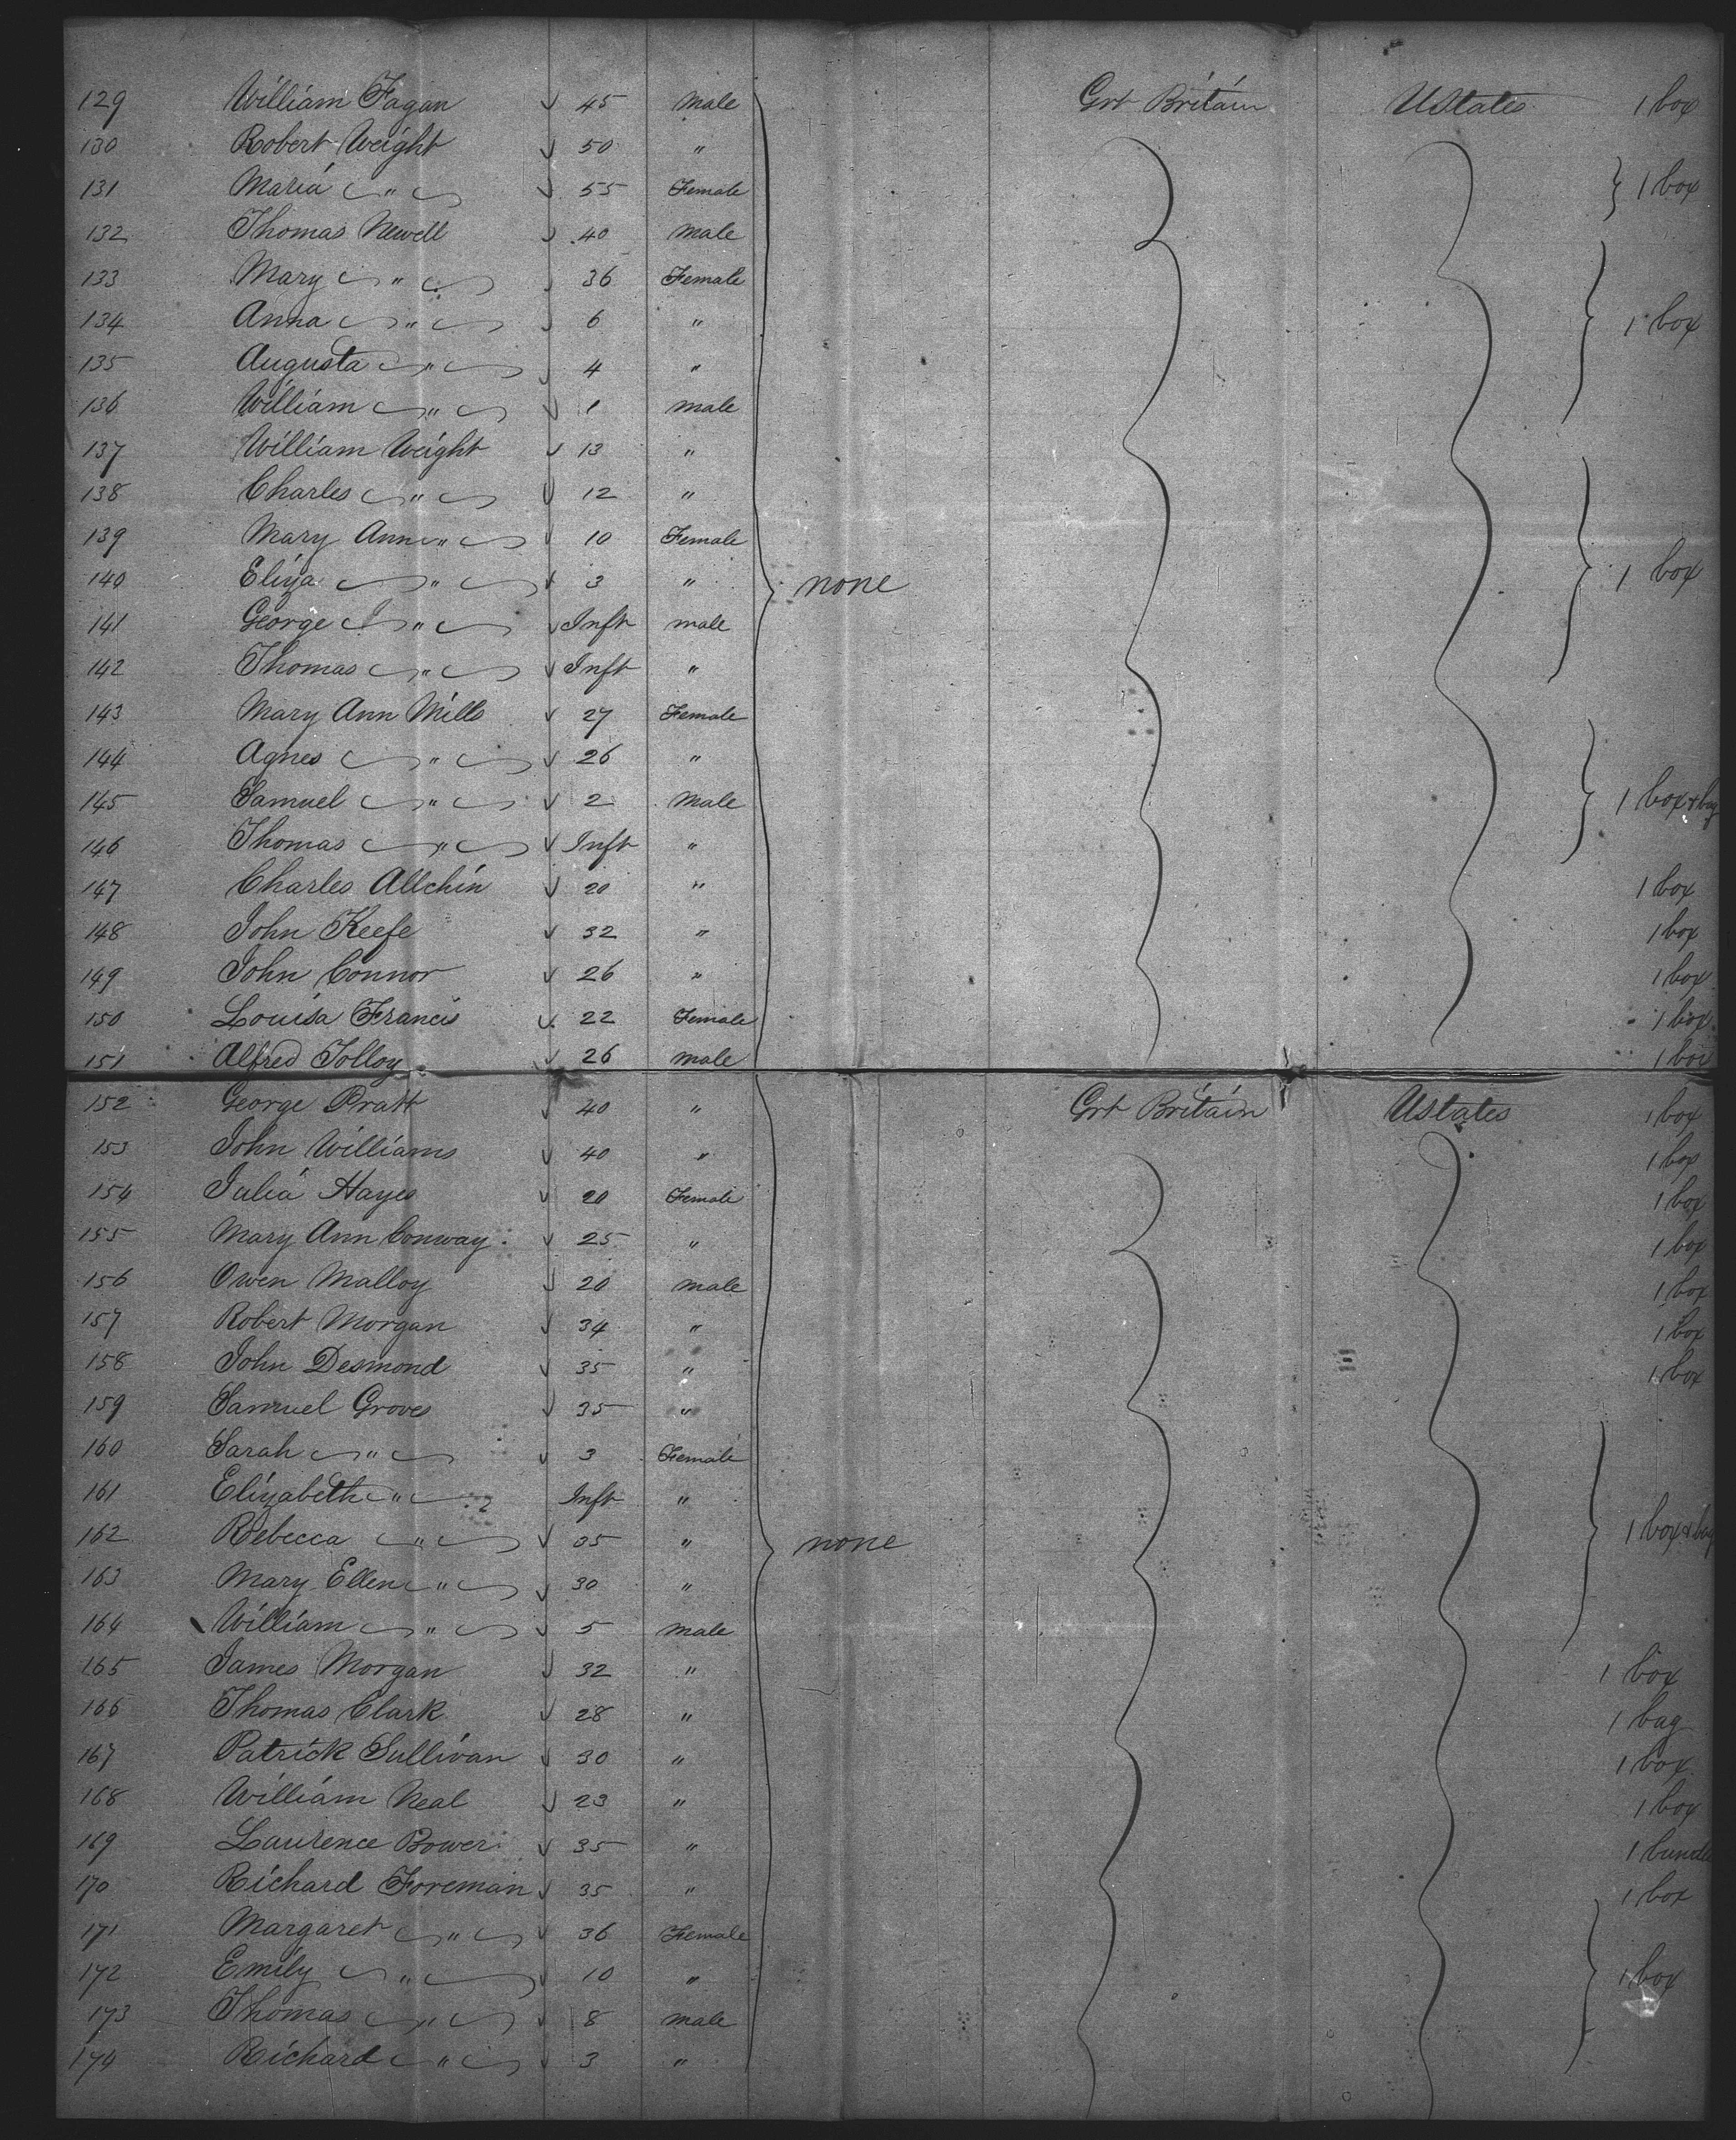 129 William Fagan √ 45 Male Grt Britain UStates 1 box
130 Robert Weight √ 50 "
131 Maria " √ 55 Female 1 box
132 Thomas Newell √ 40 Male
133 Mary " √ 36 Female
134 Anna " √ 6 " 1 box
135 Augusta " √ 4 "
136 William " √ 1 Male
137 William Weight √ 13 "
138 Charles " √ 12 "
139 Mary Ann " √ 10 Female
140 Eliza " √ 3 " none 1 box
141 George " √ Inft male
142 Thomas " √ Inft "
143 Mary Ann Mills √ 27 Female
144 Agnes " √ 26 "
145 Samuel " √ 2 Male 1 box & bag
146 Thomas " √ Inft "
147 Charles Allchin √ 20 " 1 box
148 John Keefe √ 32 " 1 box
149 John Connor √ 26 " 1 box
150 Louisa Francis √ 22 Female 1 box
151 Alfred Tolloy √ 26 Male 1 box
152 George Pratt √ 40 " Grt Britain UStates 1 box
153 John Williams √ 40 " 1 box
154 Julia Hayes √ 20 Female 1 box
155 Mary Ann Conway √ 25 " 1 box
156 Owen Malloy √ 20 male 1 box
157 Robert Morgan √ 34 " 1 box
158 John Desmond √ 35 " 1 box
159 Samuel Groves √ 35 "
160 Sarah " √ 3 Female
161 Elizabeth " Inft "
162 Rebecca " √ 35 " none 1 box & bag
163 Mary Ellen " √ 30 "
164 William " √ 5 Male
165 James Morgan √ 32 " 1 box
166 Thomas Clark √ 28 " 1 bag
167 Patrick Sullivan √ 30 " 1 box
168 William Neal √ 23 " 1 box
169 Laurence Bower √ 35 " 1 bundle
170 Richard Foreman √ 35 " 1 box
171 Margaret " √ 36 Female
172 Emily " √ 10 " 1 box
173 Thomas " √ 8 Male
174 Richard " √ 3 "